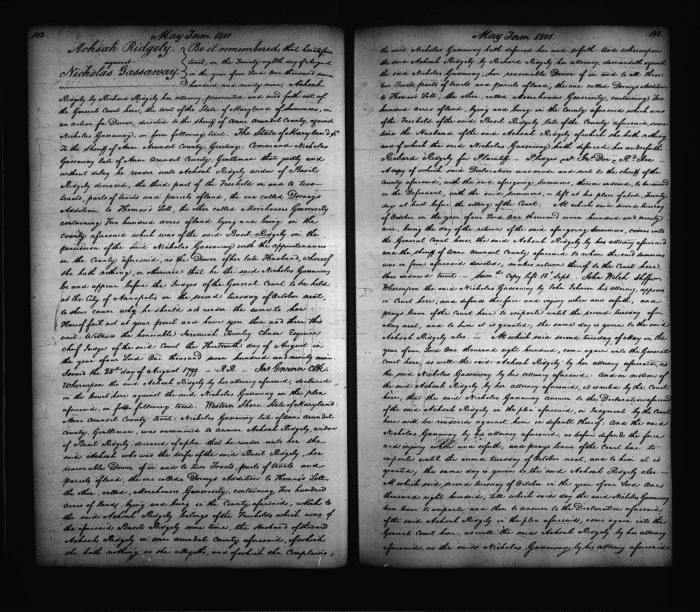 May Term 1801
Achsah Ridgely.
against
Nicholas Gassaway.
Be it remembered that heretofore
towit, on the Twenty eighth day of August
in the year of our Lord One thousand seven
hundred and ninety nine, Achsah
Ridgely by Richard Ridgely her attorney, prosecuted and sued forth out of
the General Court here, the Writ of the State of Maryland of summons, in
an action for Dower, directed to the Sheriff of Anne Arundel County, against
Nicholas Gassaway, in form following towit. The State of Maryland
To the Sheriff of Anne Arundel County, Greeting. Command Nicholas
Gassaway late of Anne Arundel County, Gentleman that justly and
without delay he render unto Achsah Ridgely widow of Basil
Ridgely deceased, the third part of the Freehold in and to two
tracts, parts of tracts and parcels of land, the one called Dorseys
Addition to Thomas's Lott, the other called Morehouses Generosity
containing Two hundred acres of land lying and being in the
county aforesaid which was of the said Basil Ridgely in the
possession of the said Nicholas Gassaway with the appurtenances
in the County aforesaid, as the Dower of her late Husband, whereof
she hath nothing, or otherwise that he the said Nicholas Gassaway
be and appear before the Judges of the General Court to be held
at the City of Annapolis on the second tuesday of October next,
to shew cause why he should not render the same to her
Hereof fail not at your peril and have you then and there this
writ. Witness the honorable Jeremiah Townley Chase Esquire
chief Judge of the said Court the Thirteenth day of August in
the year of our Lord One thousand seven hundred and ninety nine
Issued the 28th day of August 1799.
Whereupon the said Achsah Ridgely by her attorney aforesaid, declared
in the Court here against the said Nicholas Gassaway in the plea
aforesaid, in form following towit. Western Shore State of Maryland
Anne Arundel County towit. Nicholas Gassaway late of anne arundel
County, Gentleman, was summoned to answer Achsah Ridgely, widow
of Basil Ridgely, deceased of a plea that he render unto her the
said Achsah who was the wife of the said Basil Ridgely, her
reasonable Dower of in and to two Tracts, parts of tracts and
parcels of land, the one called Dorseys Addition to Thomas's Lott,
the other, called, Morehouses Generosity, containing Two hundred
acres of land, lying and being in the County aforesaid, which to
the said Achsah Ridgely belongs of the Freehold which was of
the aforesaid Basil Ridgely some time, the Husband of the said
Achsah Ridgely in anne arundel County aforesaid, of which
she hath nothing as she alledges, and of which she complains,
May Term 1801.
the said Nicholas Gassaway hath deforced her and so forth And whereupon
the said Achsah Ridgely, by Richard Ridgely her attorney, demandeth against
the said Nicholas Gassaway, her reasonable Dower of in and to all those
two tracts, parts of tracts and parcels of land, the one called Dorseys Addition
to Thomas's Lott, the other, called Morehouses Generosity, containing Two
hundred acres of land, lying and being in the County aforesaid which was
of the Freehold of the said Basil Ridgely deceased aforesaid, some
time the Husband of the said Achsah Ridgely of which she hath nothing
and of which the said Nicholas Gassaway hath deforced her, as aforesaid
Richard Ridgely for Plaintiff
A copy of which said Declaration was made and sent to the sheriff of the
county aforesaid, with the aforegoing summons, thereon indorsed, to be served on
the Defendant, with the said summons, or left at his place of abode, twenty
days at least before the sitting of the Court. At which said second tuesday
of October in the year of our Lord One thousand seven hundred and ninety
nine, being the day of the return of the said aforegoing summons, comes into
the General Court here, the said Achsah Ridgely by his attorney aforesaid
and the sheriff of Anne Arundel County aforesaid to whom the said summons
was in form aforesaid directed, makes return thereof to the Court here,
thus indorsed towit. Copy left 18th Sept. John Welch Sheriff.
Whereupon the said Nicholas Gassaway by John Johnson his attorney, appears
in Court here, and defends the force and injury when and soforth, and
prays leave of the Court here to imparle until the second tuesday of
May next, and to him it is granted, the same day is given to the said
Achsah Ridgely also. At which said second tuesday of May in the
year of our Lord One thousand eight hundred, came again into the General
Court here, as well the said Achsah Ridgely by her attorney aforesaid, as
the said Nicholas Gassaway by his attorney aforesaid. And on motion of
the said Achsah Ridgely by her attorney aforesaid, it is ruled by the Court
here, that the said Nicholas Gassaway answer to the Declaration aforesaid
of the said Achsah Ridgely in the plea aforesaid, or Judgment by the Court
here will be rendered against him in default thereof. And the said
Nicholas Gassaway by his attorney aforesaid, as before defends the force
and injury when and soforth, and prays leave of the Court here to
imparle until the second tuesday of October next, and to him it is
granted, the same day is given to the said Achsah Ridgely also
At which said second tuesday of October in the year of our Lord One
thousand eight hundred, till which said day the said Nicholas Gassaway
had leave to imparle and then to answer to the Declaration aforesaid
of the said Achsah Ridgely in the plea aforesaid, came again into the
General Court here, as well the said Achsah Ridgely by his attorney
aforesaid, as the said Nicholas Gassaway, by his attorney aforesaid